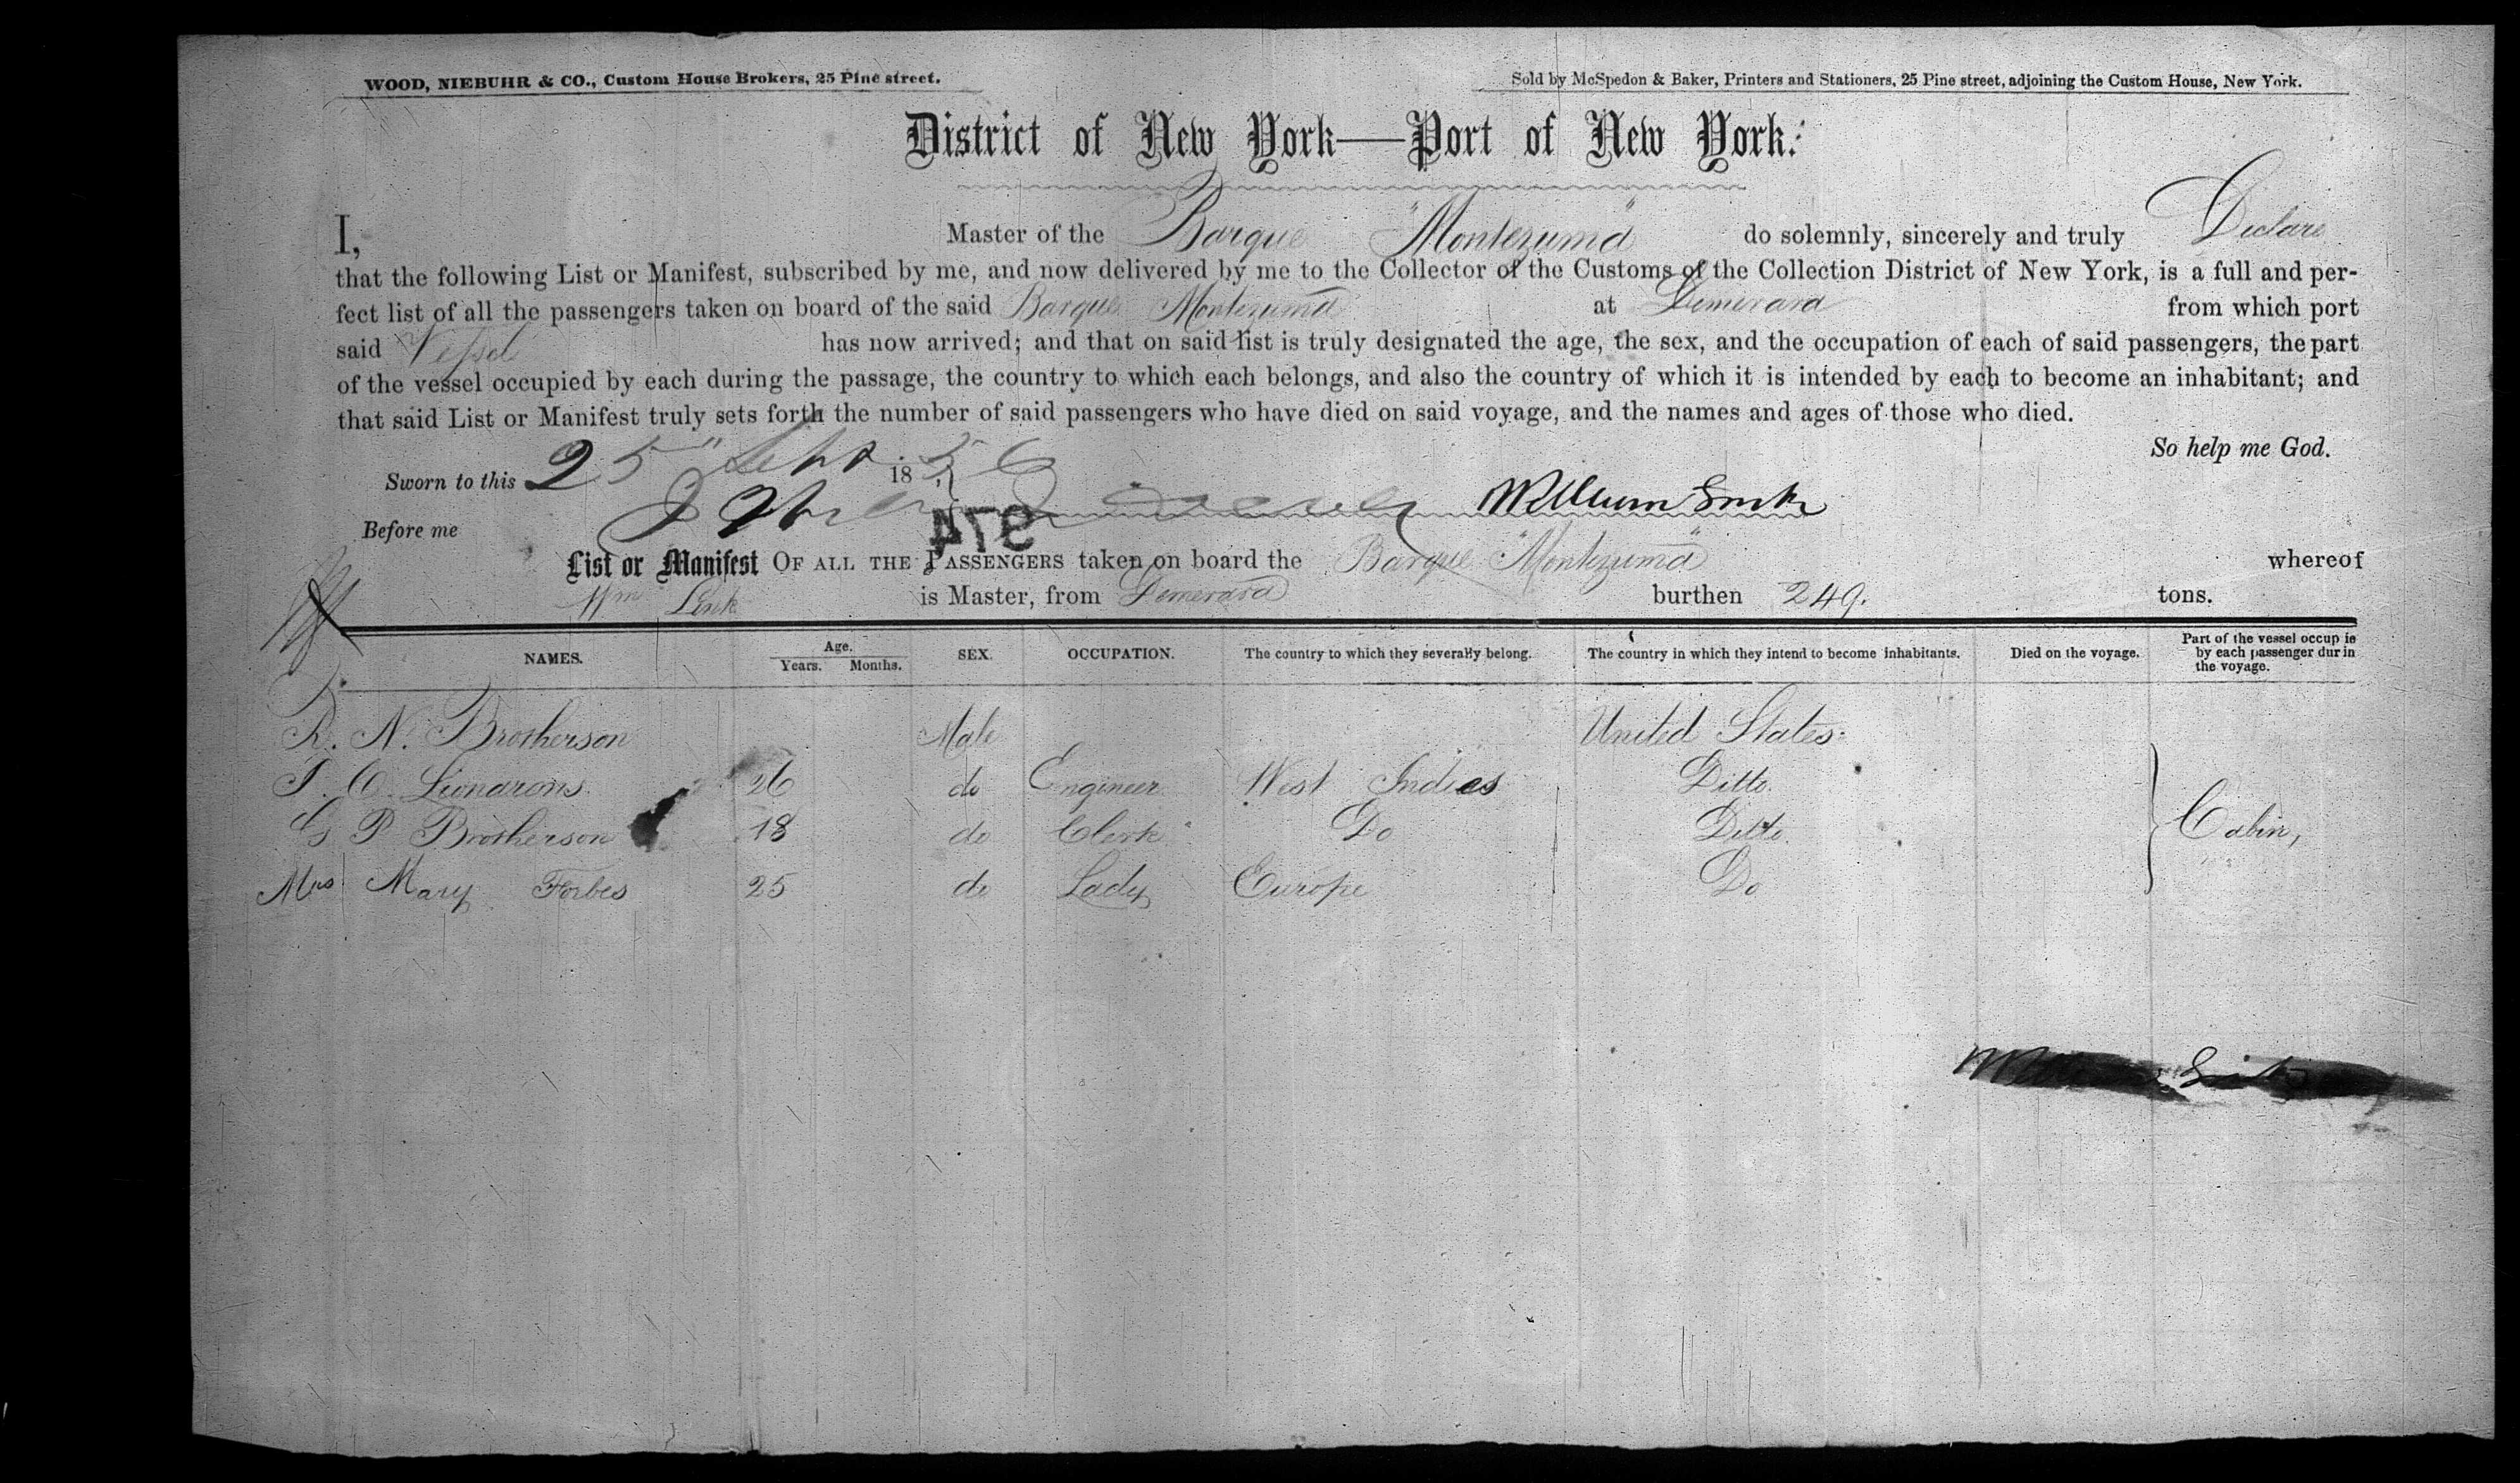 WOOD, NIEBUHR & CO., Custom House Brokers, 25 Pine street.
Sold by McSpedon & Baker, Printers and Stationers, 25 Pine street, adjoining the Custom House, New York.
District of New York—Port of New York.
I, Master of the Barque "Montezuma" do solemnly, sincerely and truly Declare
that the following List or Manifest, subscribed by me, and now delivered by me to the Collector of the Customs of the Collection District of New York, is a full and per-
fect list of all the passengers taken on board of the said Barque Montezuma at Demerara from which port
said Vessel has now arrived; and that on said list is truly designated the age, the sex, and the occupation of each of said passengers, the part
of the vessel occupied by each during the passage, the country to which each belongs, and also the country of which it is intended by each to become an inhabitant; and
that said List or Manifest truly sets forth the number of said passengers who have died on said voyage, and the names and ages of those who died.
So help me God.
Sworn to this 25" Sept 1856
Before me William
974
List or Manifest OF ALL THE PASSENGERS taken on board the Barque "Montezuma" whereof
Wm is Master, from Demerara burthen 249. tons.
NAMES. Age. Years. Months. SEX. OCCUPATION. The country to which they severally belong. The country in which they intend to become inhabitants. Died on the voyage. Part of the vessel occup ie by each passenger dur in the voyage.
R. N. Brotherson Male United States.
26 do Engineer West Indies Ditto.
G P Brotherson 18 do Clerk Do Ditto.
Cabin,
Mrs Mary Forbes 25 do Lady Europe Do